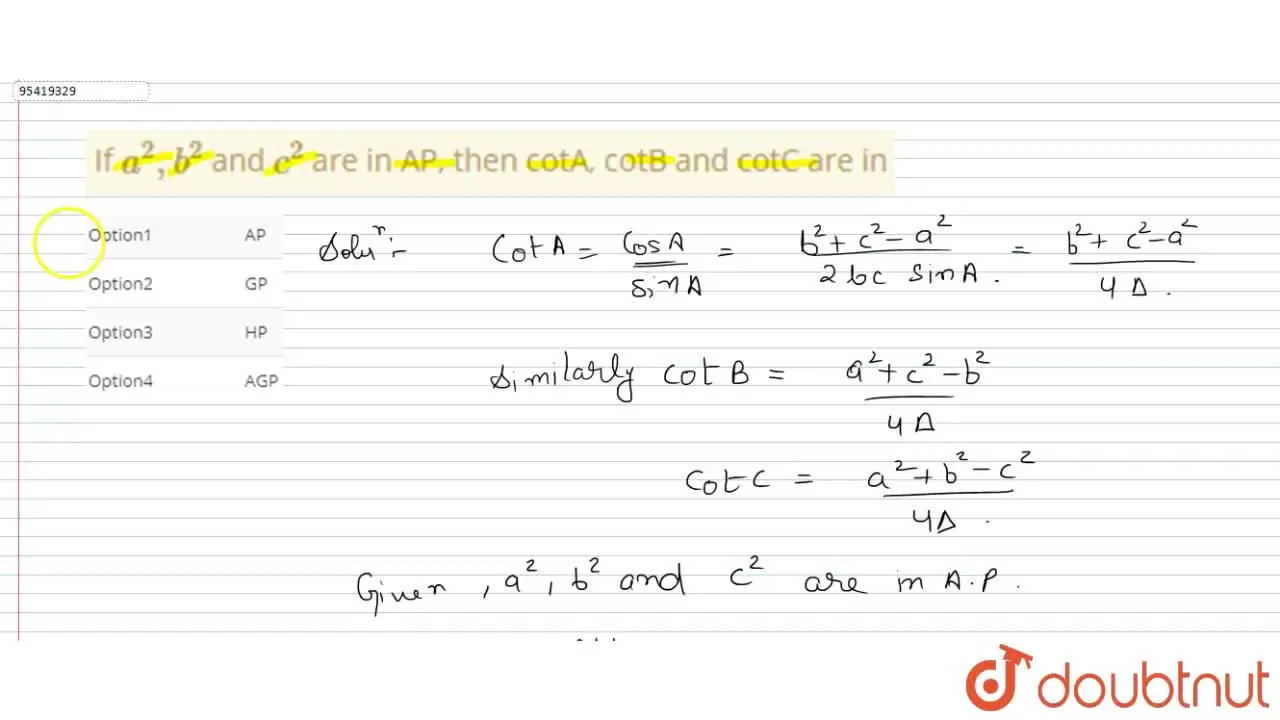 95419329
If a², b² and c² are in AP, then cotA, cotB and cotC are in
Option1 AP
Option2 GP
Option3 HP
Option4 AGP
Solnʳ :- Cot A = Cos A / Sin A = b² + c² - a² / 2 bc Sin A . = b² + c² - a² / 4 Δ .
Similarly Cot B = a² + c² - b² / 4 Δ
Cot C = a² + b² - c² / 4 Δ .
Given , a² , b² and c² are in A.P .
doubtnut